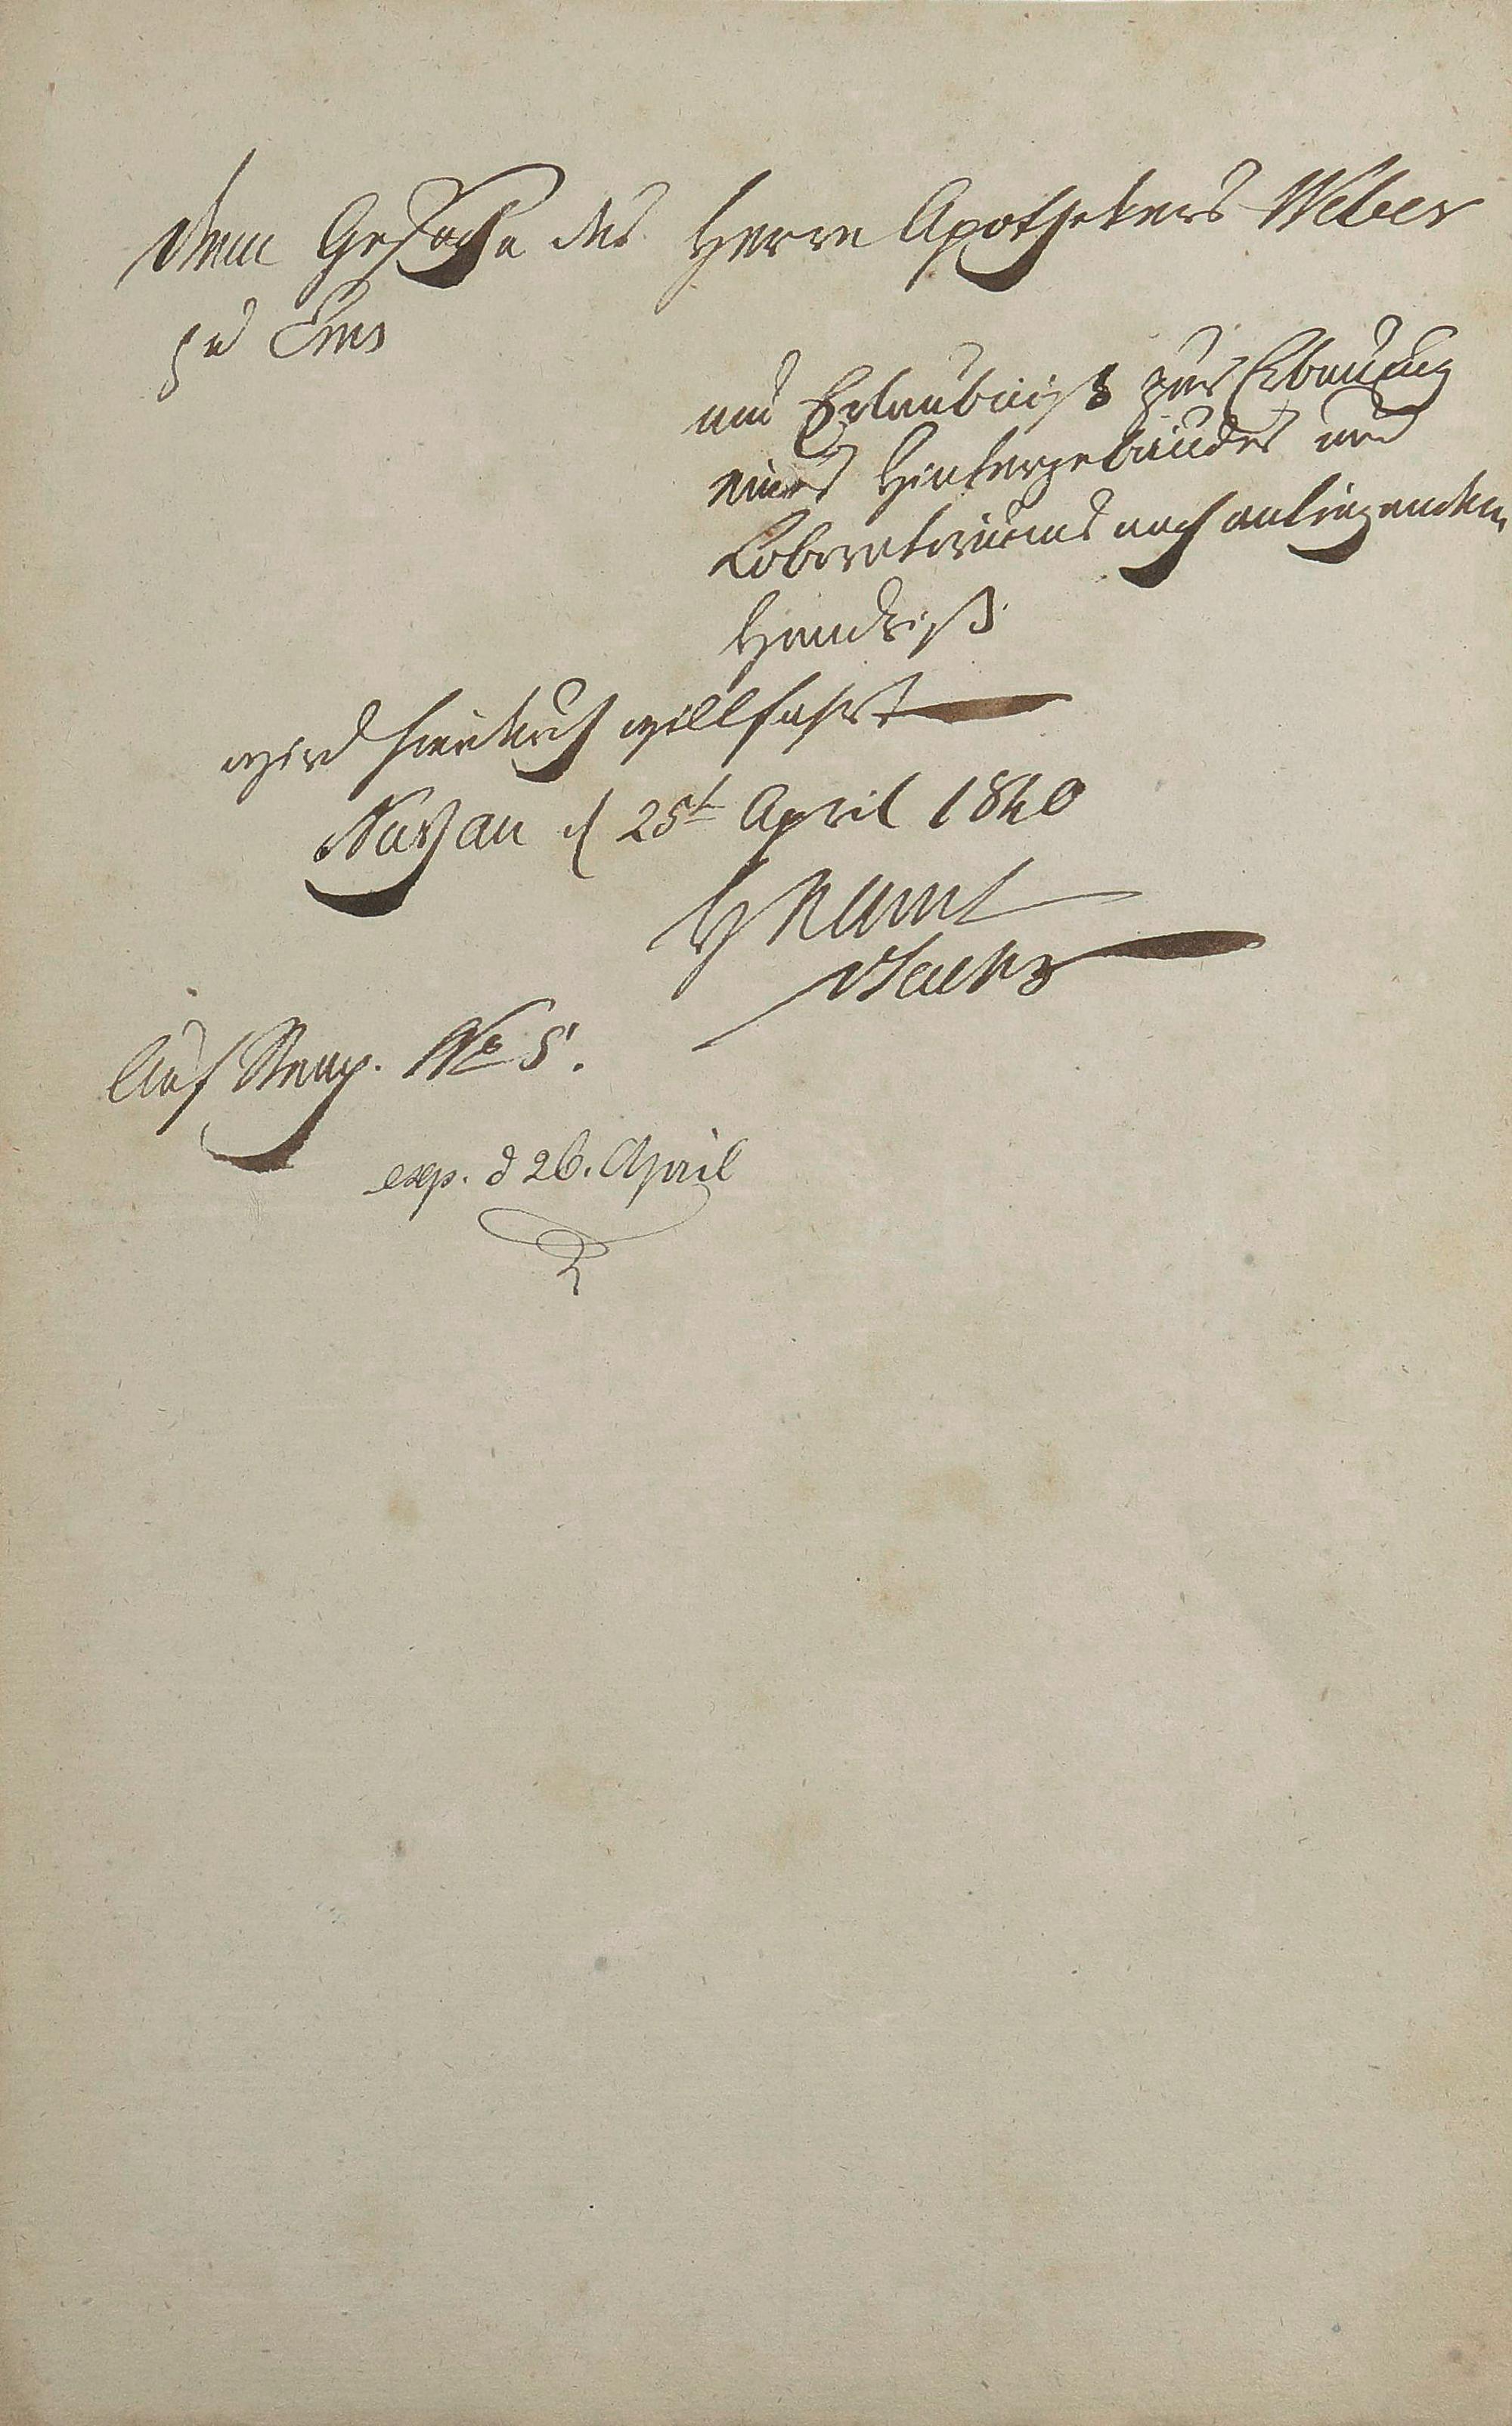 Dem Gesuche des Herrn Apothekers Weber
zu Ems
um Erlaubniß zur Erbauung
eines Hintergebäudes und
Laboratoriums nach anliegendem
Handriß
wird hierdurch willfahrt
Nassau d 25t April 1840
H N Amt
Auf Stemp. No 5.
exp. d 26. April